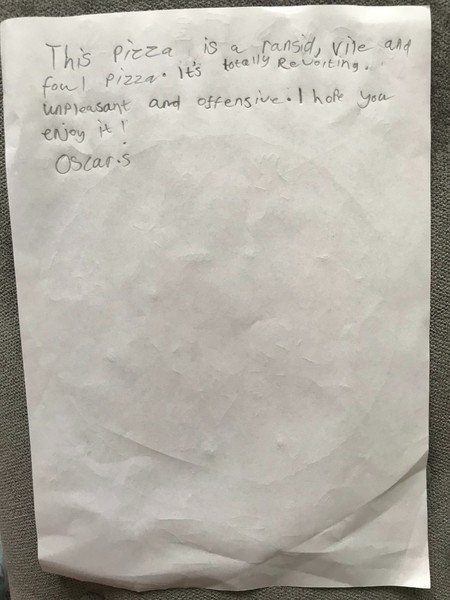 This pizza is a ransid, vile and
foul pizza. it's totally Revolting.
unpleasant and offensive. I hope you
enjoy it!
Oscar.s